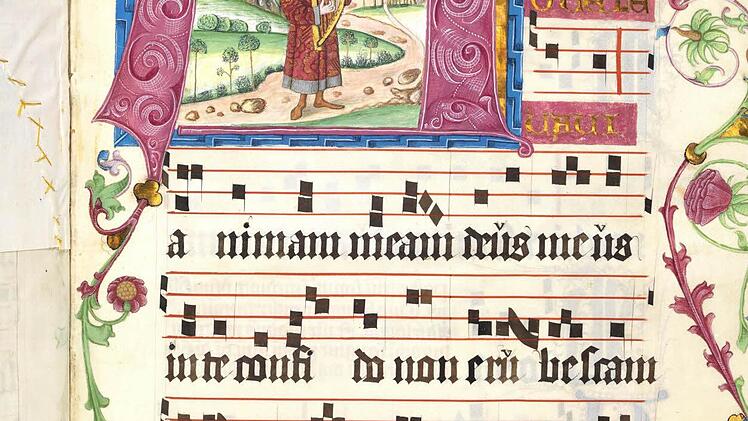 UAUI
a nimam meam deus meus
in te confi do non eru bescam